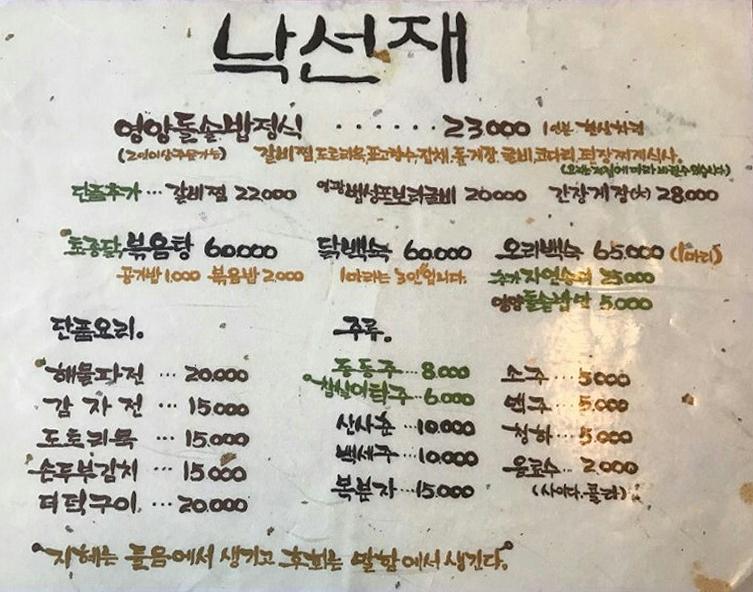 낙선재
영양돌솥밥정식 ······ 23,000 1인분 현상차림
(2인이상주문가능) 갈비찜.도토리묵.표고탕수.잡채.돌게장.굴비.코다리.된장찌개식사.
단품추가 ··· 갈비찜 22,000 영광법성포보리굴비 20,000 간장게장(大) 28,000
토종닭볶음탕 60,000 닭백숙 60,000 오리백숙 65,000 (1마리)
공기밥 1,000 볶음밥 2,000 1마리는 3인입니다. 추가 자연송이 25,000
영양돌솥밥 5,000
단품요리. 주류.
해물파전 ··· 20,000 동동주 ··· 8,000 소주 ··· 5,000
감자전 ··· 15,000 찹쌀이탁주 ··· 6,000 맥주 ··· 5,000
도토리묵 ··· 15,000 산사춘 ··· 10,000 청하 ··· 5,000
손두부김치 ··· 15,000 백세주 ··· 10,000 음료수 ··· 2,000
더덕구이 ··· 20,000 복분자 ··· 15,000 (사이다.콜라)
지혜는 들음에서 생기고 후회는 말함에서 생긴다.